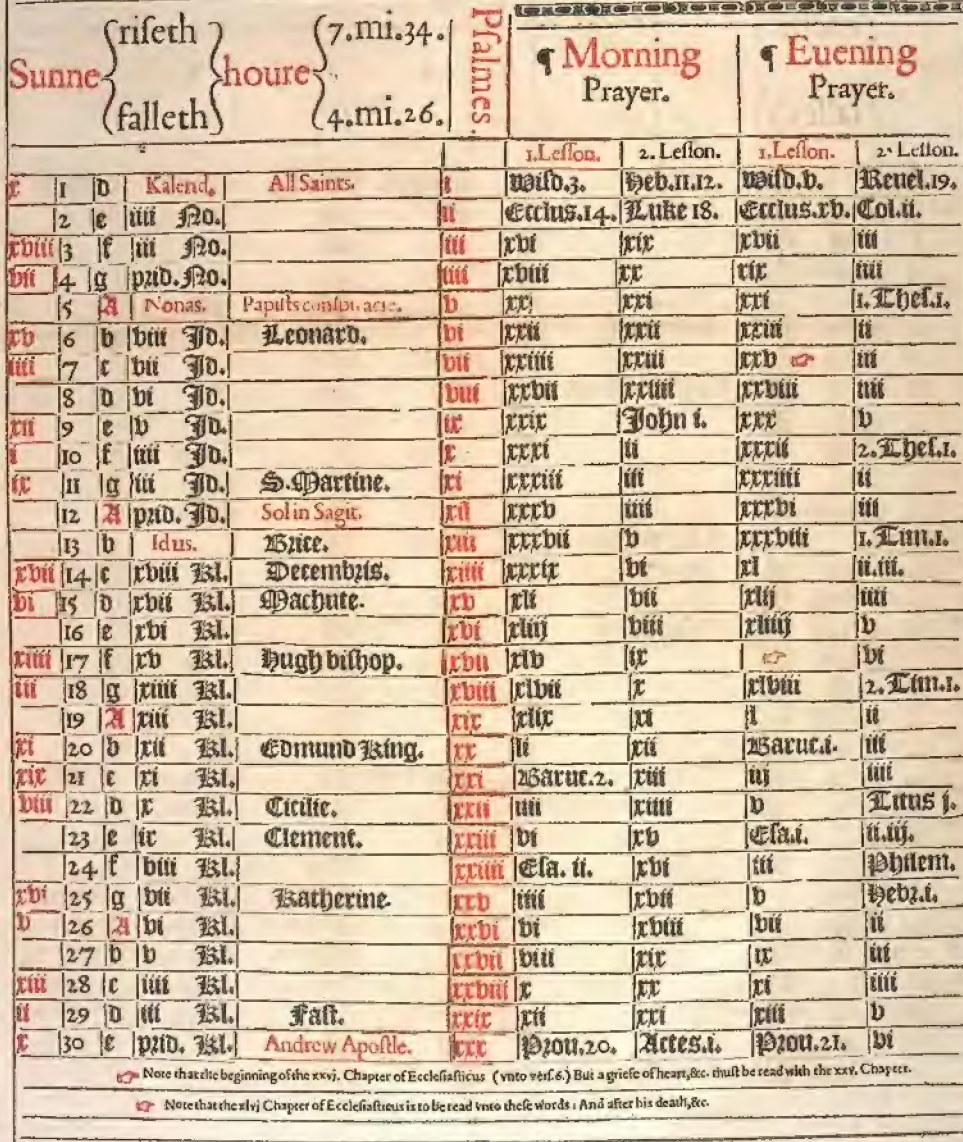 Sunne { riseth falleth } houre { 7.mi.34. 4.mi.26.
Psalmes.
¶ Morning Prayer.
¶ Euening Prayer.
1.Lesson. 2.Lesson. 1.Lesson. 2.Lesson.
x 1 D Kalend. All Saints. i Wisd.3. Heb.11,12. Wisd.v. Reuel.19.
2 e iiii No. ii Ecclus.14. Luke 18. Ecclus.xv. Col.ii.
xviii 3 f iii No. iii xvi xix xvii iii
vii 4 g prid.No. iiii xviii xx xix iiii
5 A Nonas. Papists conspiracie. v xx xxi xxi 1.Thes.1.
xv 6 b viii Id. Leonard. vi xxii xxii xxiii ii
iiii 7 c vii Id. vii xxiiii xxiii xxv ☞ iii
8 D vi Id. viii xxvii xxiiii xxviii iiii
xii 9 e v Id. ix xxix John i. xxx v
i 10 f iiii Id. x xxxi ii xxxii 2.Thes.1.
ix 11 g iii Id. S.Martine. xi xxxiii iii xxxiiii ii
12 A prid.Id. Sol in Sagit. xii xxxv iiii xxxvi iii
13 b Idus. Brice. xiii xxxvii v xxxviii 1.Tim.1.
xvii 14 c xviii Kl. Decembris. xiiii xxxix vi xl ii.iii.
vi 15 D xvii Kl. Machute. xv xli vii xlij iiii
16 e xvi Kl. xvi xliij viii xliiij v
xiiii 17 f xv Kl. Hugh bishop. xvii xlv ix ☞ vi
iii 18 g xiiii Kl. xviii xlvii x xlviii 2.Tim.1.
19 A xiii Kl. xix xlix xi l ii
xi 20 b xii Kl. Edmund King. xx li xii Baruc.i. iii
xix 21 c xi Kl. xxi Baruc.2. xiii iij iiii
viii 22 D x Kl. Cicilie. xxii iiii xiiii v Titus j.
23 e ix Kl. Clement. xxiii vi xv Esa.i. ii.iij.
24 f viii Kl. xxiiii Esa. ii. xvi iii Philem.
xvi 25 g vii Kl. Katherine. xxv iiii xvii v Hebr.i.
v 26 A vi Kl. xxvi vi xviii vii ii
27 b v Kl. xxvii viii xix ix iii
xiii 28 c iiii Kl. xxviii x xx xi iiii
ii 29 D iii Kl. Fast. xxix xii xxi xiii v
x 30 e prid. Kl. Andrew Apostle. xxx Prou.20. Actes.i. Prou.21. vi
☞ Note that the beginning of the xxvj. Chapter of Ecclesiasticus (vnto vers.6.) But a griefe of heart,&c. must be read with the xxv. Chapter.
☞ Note that the xlvj Chapter of Ecclesiasticus is to be read vnto these words : And after his death,&c.